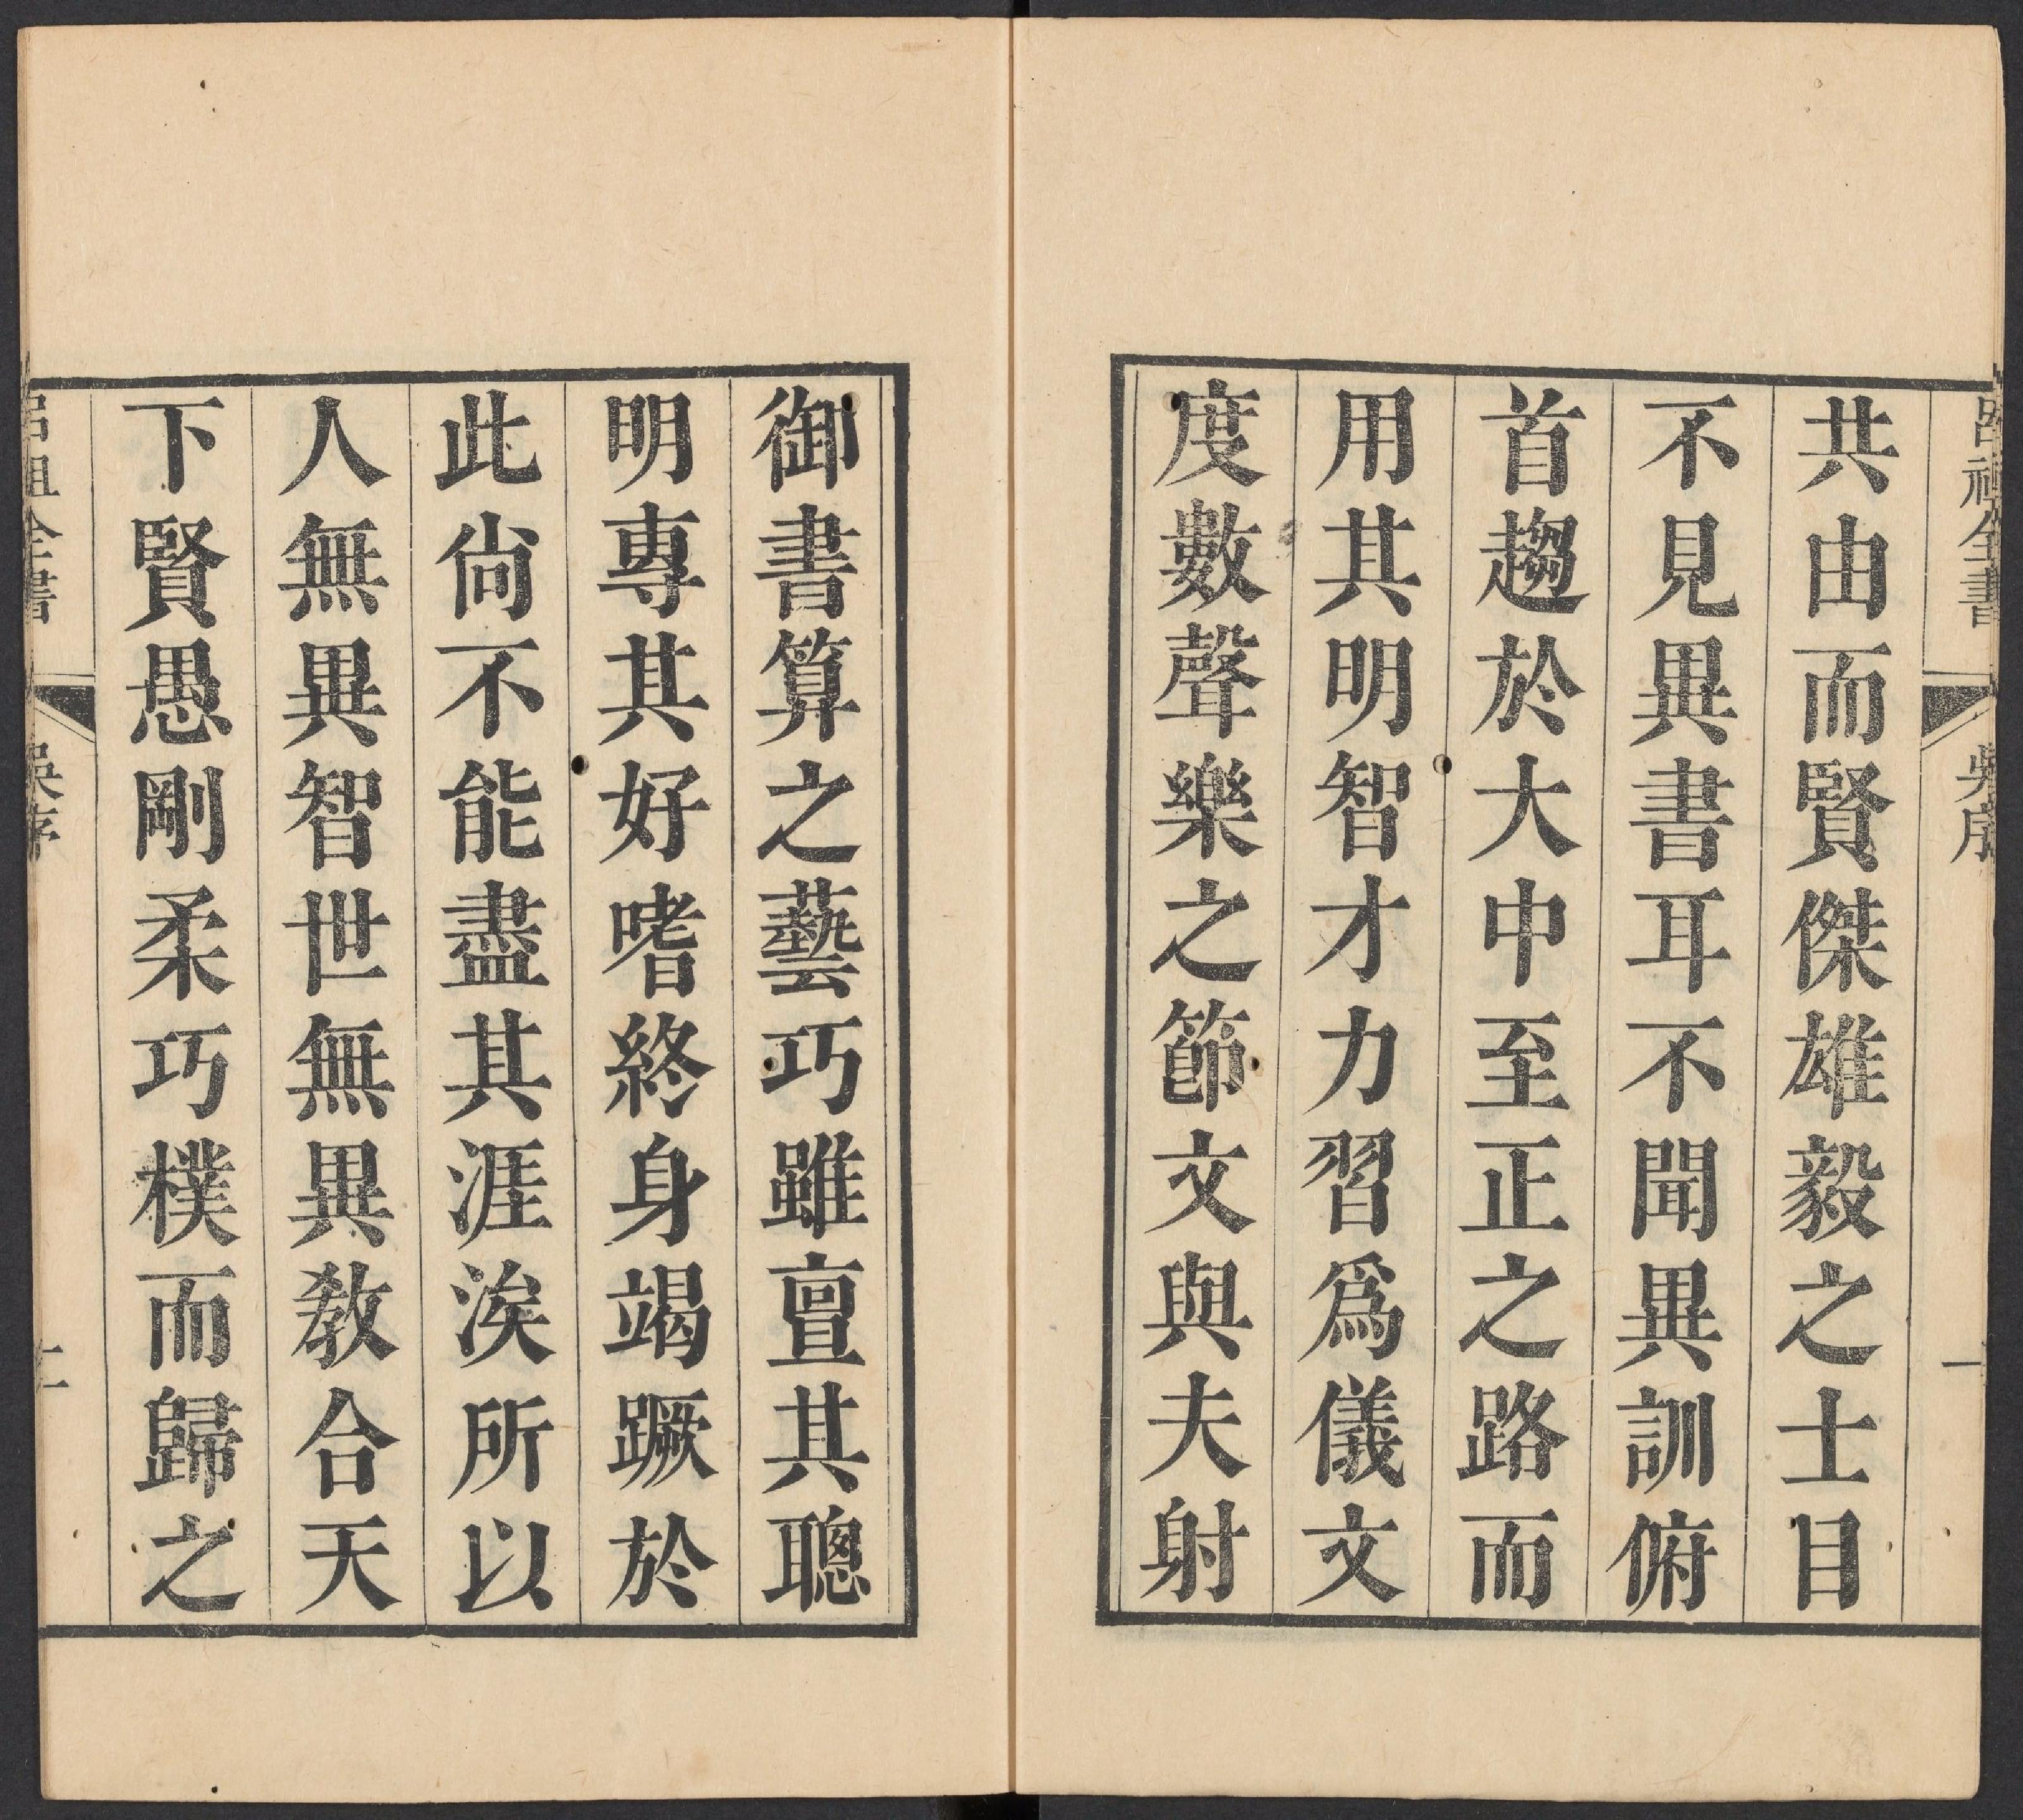 呂祖全書 吳序 一
共由而賢傑雄毅之士目
不見異書耳不聞異訓俯
首趨於大中至正之路而
用其明智才力習爲儀文
度數聲樂之節文與夫射
御書算之藝巧雖亶其聰
明專其好嗜終身竭蹶於
此尙不能盡其涯涘所以
人無異智世無異敎合天
下賢愚剛柔巧樸而歸之
呂祖全書 吳序 二